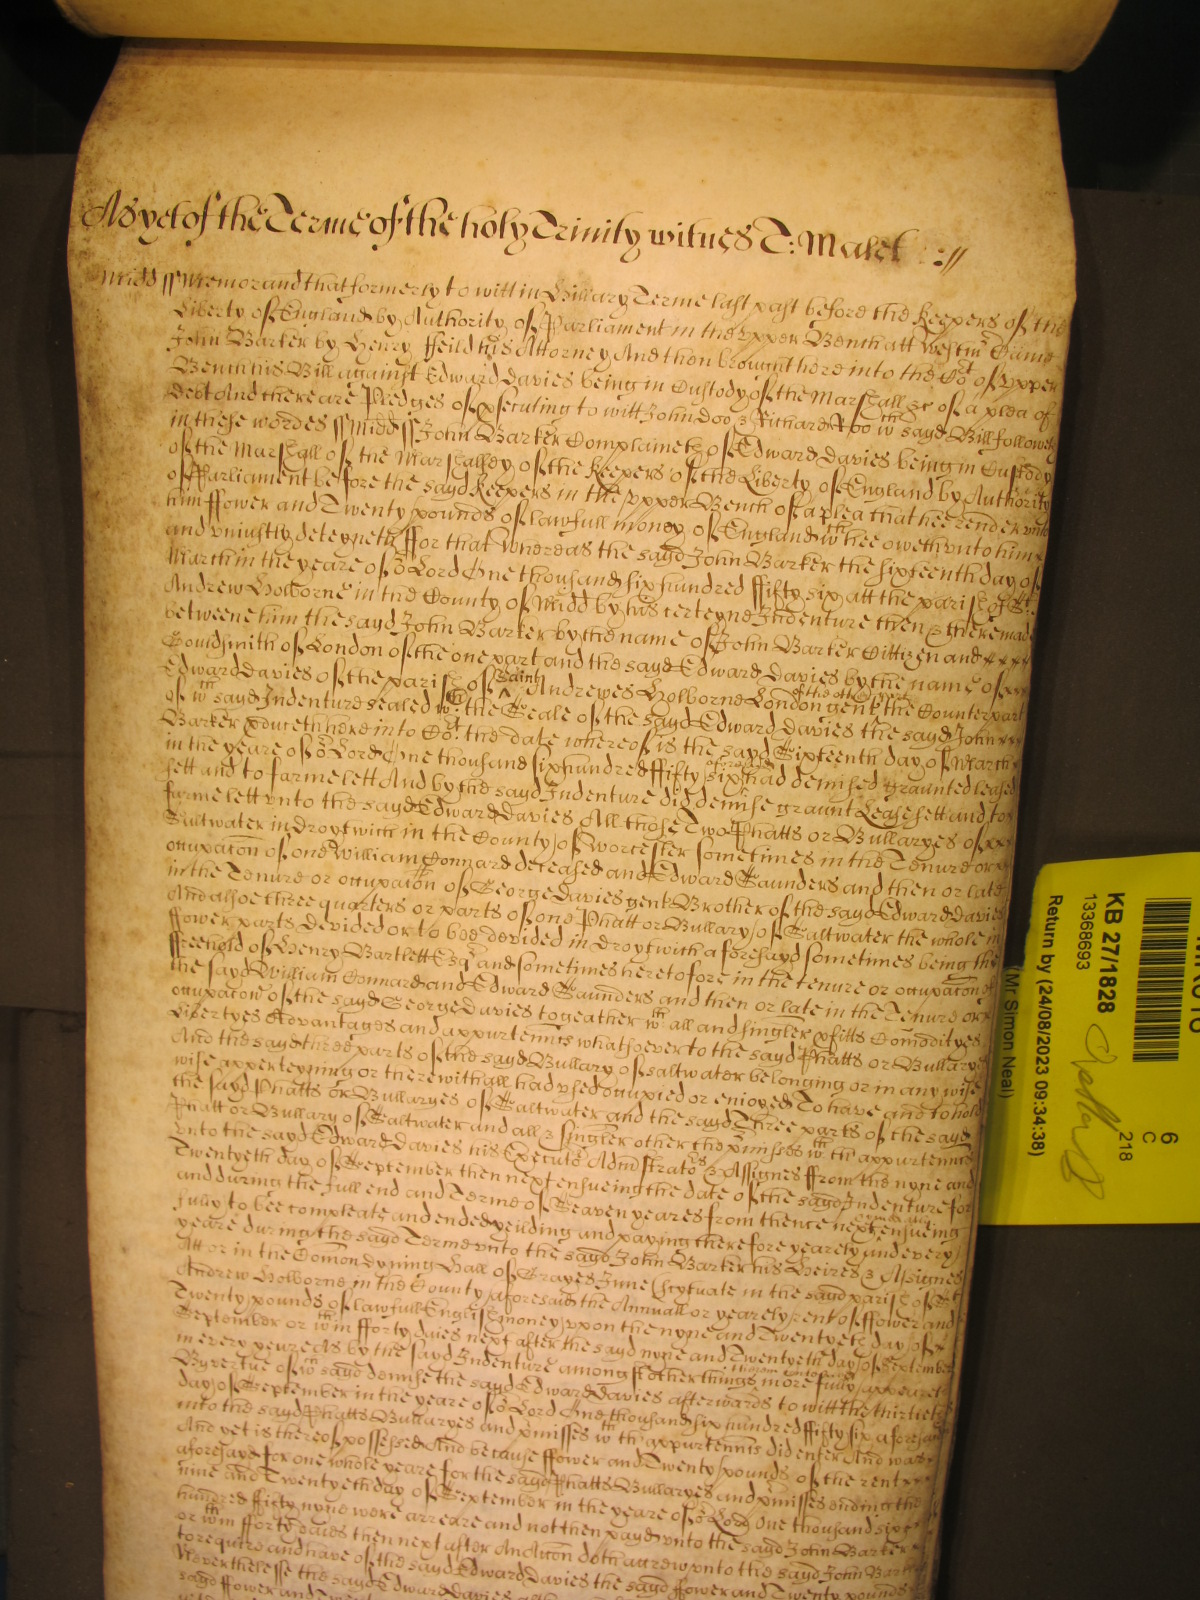 As yet of the Terme of the holy Trinity witnes T: Malet
Midd ss Memorand that formerly to witt in Hillary Terme last past before the Keepers of the
Liberty of England by Authority of Parliament in the Vpper Bench att Westm Came
John Barker by Henry ffeild his Attorney And then brought here into the Cot of Vpper
Bench his Bill against Edward Davies being in Custody of the Marshall &c of a plea of
debt And there are Pledges of psecuting to witt John Doo & Richard Roo wth sayd Bill followeth
in these wordes ss Midd ss John Barker Complaineth of Edward Davies being in Custody
of the Marshall of the Marshalsey of the Keepers of the Liberty of England by Authority
of Parliament before the sayd Keepers in the Vpper Bench of a plea that hee render vnto
him ffower and Twenty pounds of lawfull money of England wch hee oweth vnto him
and vniustly deteyneth ffor that Whereas the sayd John Barker the sixteenth day of
March in the yeare of or Lord One thousand six hundred ffifty six att the parish of St
Andrew Holborne in the County of Midd by his certeyne Indenture then & there made
betweene him the sayd John Barker by the name of John Barker Cittizen and
Gouldsmith of London of the one part and the sayd Edward Davies by the name of
Edward Davies of the parish of Saint Andrewes Holborne London gent of the other part the Counterpart
of wch sayd Indenture sealed wth the Seale of the sayd Edward Davies the sayd John
Barker pduceth here into Cot the date whereof is the sayd Sixteenth day of March
in the yeare of or Lord One thousand six hundred ffifty six aforesaid had demised graunted leased
sett and to farme lett And by the sayd Indenture did demise graunt Lease sett and to
farme lett vnto the sayd Edward Davies All those Two Phatts or Bullaryes of
Saltwater in Droytwich in the County of Worcester sometimes in the Tenure or
occupacon of one William Connard deceased and Edward Saunders and then or late
in the Tenure or occupacon of George Davies gent Brother of the sayd Edward Davies
And alsoe three quarters or parts of one Phatt or Bullary of Saltwater the whole in
ffower parts devided or to bee devided in Droytwich aforesayd sometimes being the
ffreehold of Henry Bartlett Esqr and sometimes heretofore in the tenure or occupacon of
the sayd William Connard and Edward Saunders and then or late in the Tenure or
occupacon of the sayd George Davies togeather wth all and singler pfitts Comodityes
Libertyes Advantages and appurtennts whatsoever to the sayd Phatts or Bullarys
And the sayd three parts of the sayd Bullary of saltwater belonging or in any wise
wise apperteyning or therewithall had vsed occupied or enioyed To have and to hold
the sayd Phatts or Bullaryes of Saltwater and the sayd Three parts of the sayd
Phatt or Bullary of Saltwater and all & singler other the pmisses wth th appurtennts
vnto the sayd Edward Davies his Executors Admistrators & Assignes ffrom the nyne and
Twentyeth day of September then next ensueing the date of the sayd Indenture for
and during the full end and Terme of Seaven yeares from thence next ensueing
fully to bee compleate and ended yeilding and paying therefore yearely and every
yeare during the sayd Terme vnto the sayd John Barker his Heires & Assignes
Att or in the Comon dyning Hall of Grayes Inne scytuate in the sayd parish of St
Andrew Holborne in the County aforesaid the Annuall or yearely rent of ffower and
Twenty pounds of lawfull English money vpon the nyne and Twentyeth day of
September or wthin fforty daies next after the sayd nyne and Twentyeth day of September
in every yeare As by the sayd Indenture amongst other things more fully appeareth
By vertue of wch sayd demise the sayd Edward Davies afterwards to witt the thirtieth
day of September in the yeare of or Lord One thousand six hundred ffifty six aforesaid
into the sayd Phatts Bullaryes and pmisses wth th appurtennts did enter And was
And yet is thereof possessed And because ffower and Twenty pounds of the rent
aforesayd for one whole yeare for the sayd Phatts Bullaryes and pmisses ending the
nine and Twentyeth day of September in the yeare of or Lord One thousand six
hundred ffifty nyne were arreare and not then payd vnto the sayd John Barker
or wthin fforty daies then next after An Accon doth accrew vnto the sayd John Barker
to require and have of the sayd Edward Davies the sayd ffower and Twenty pounds
Neverthelesse the sayd Edward Davies
sayd ffower and
KB 27/1828
13368693
Return by (24/08/2023 09:34:38)
(Mr Simon Neal)
6
C
218